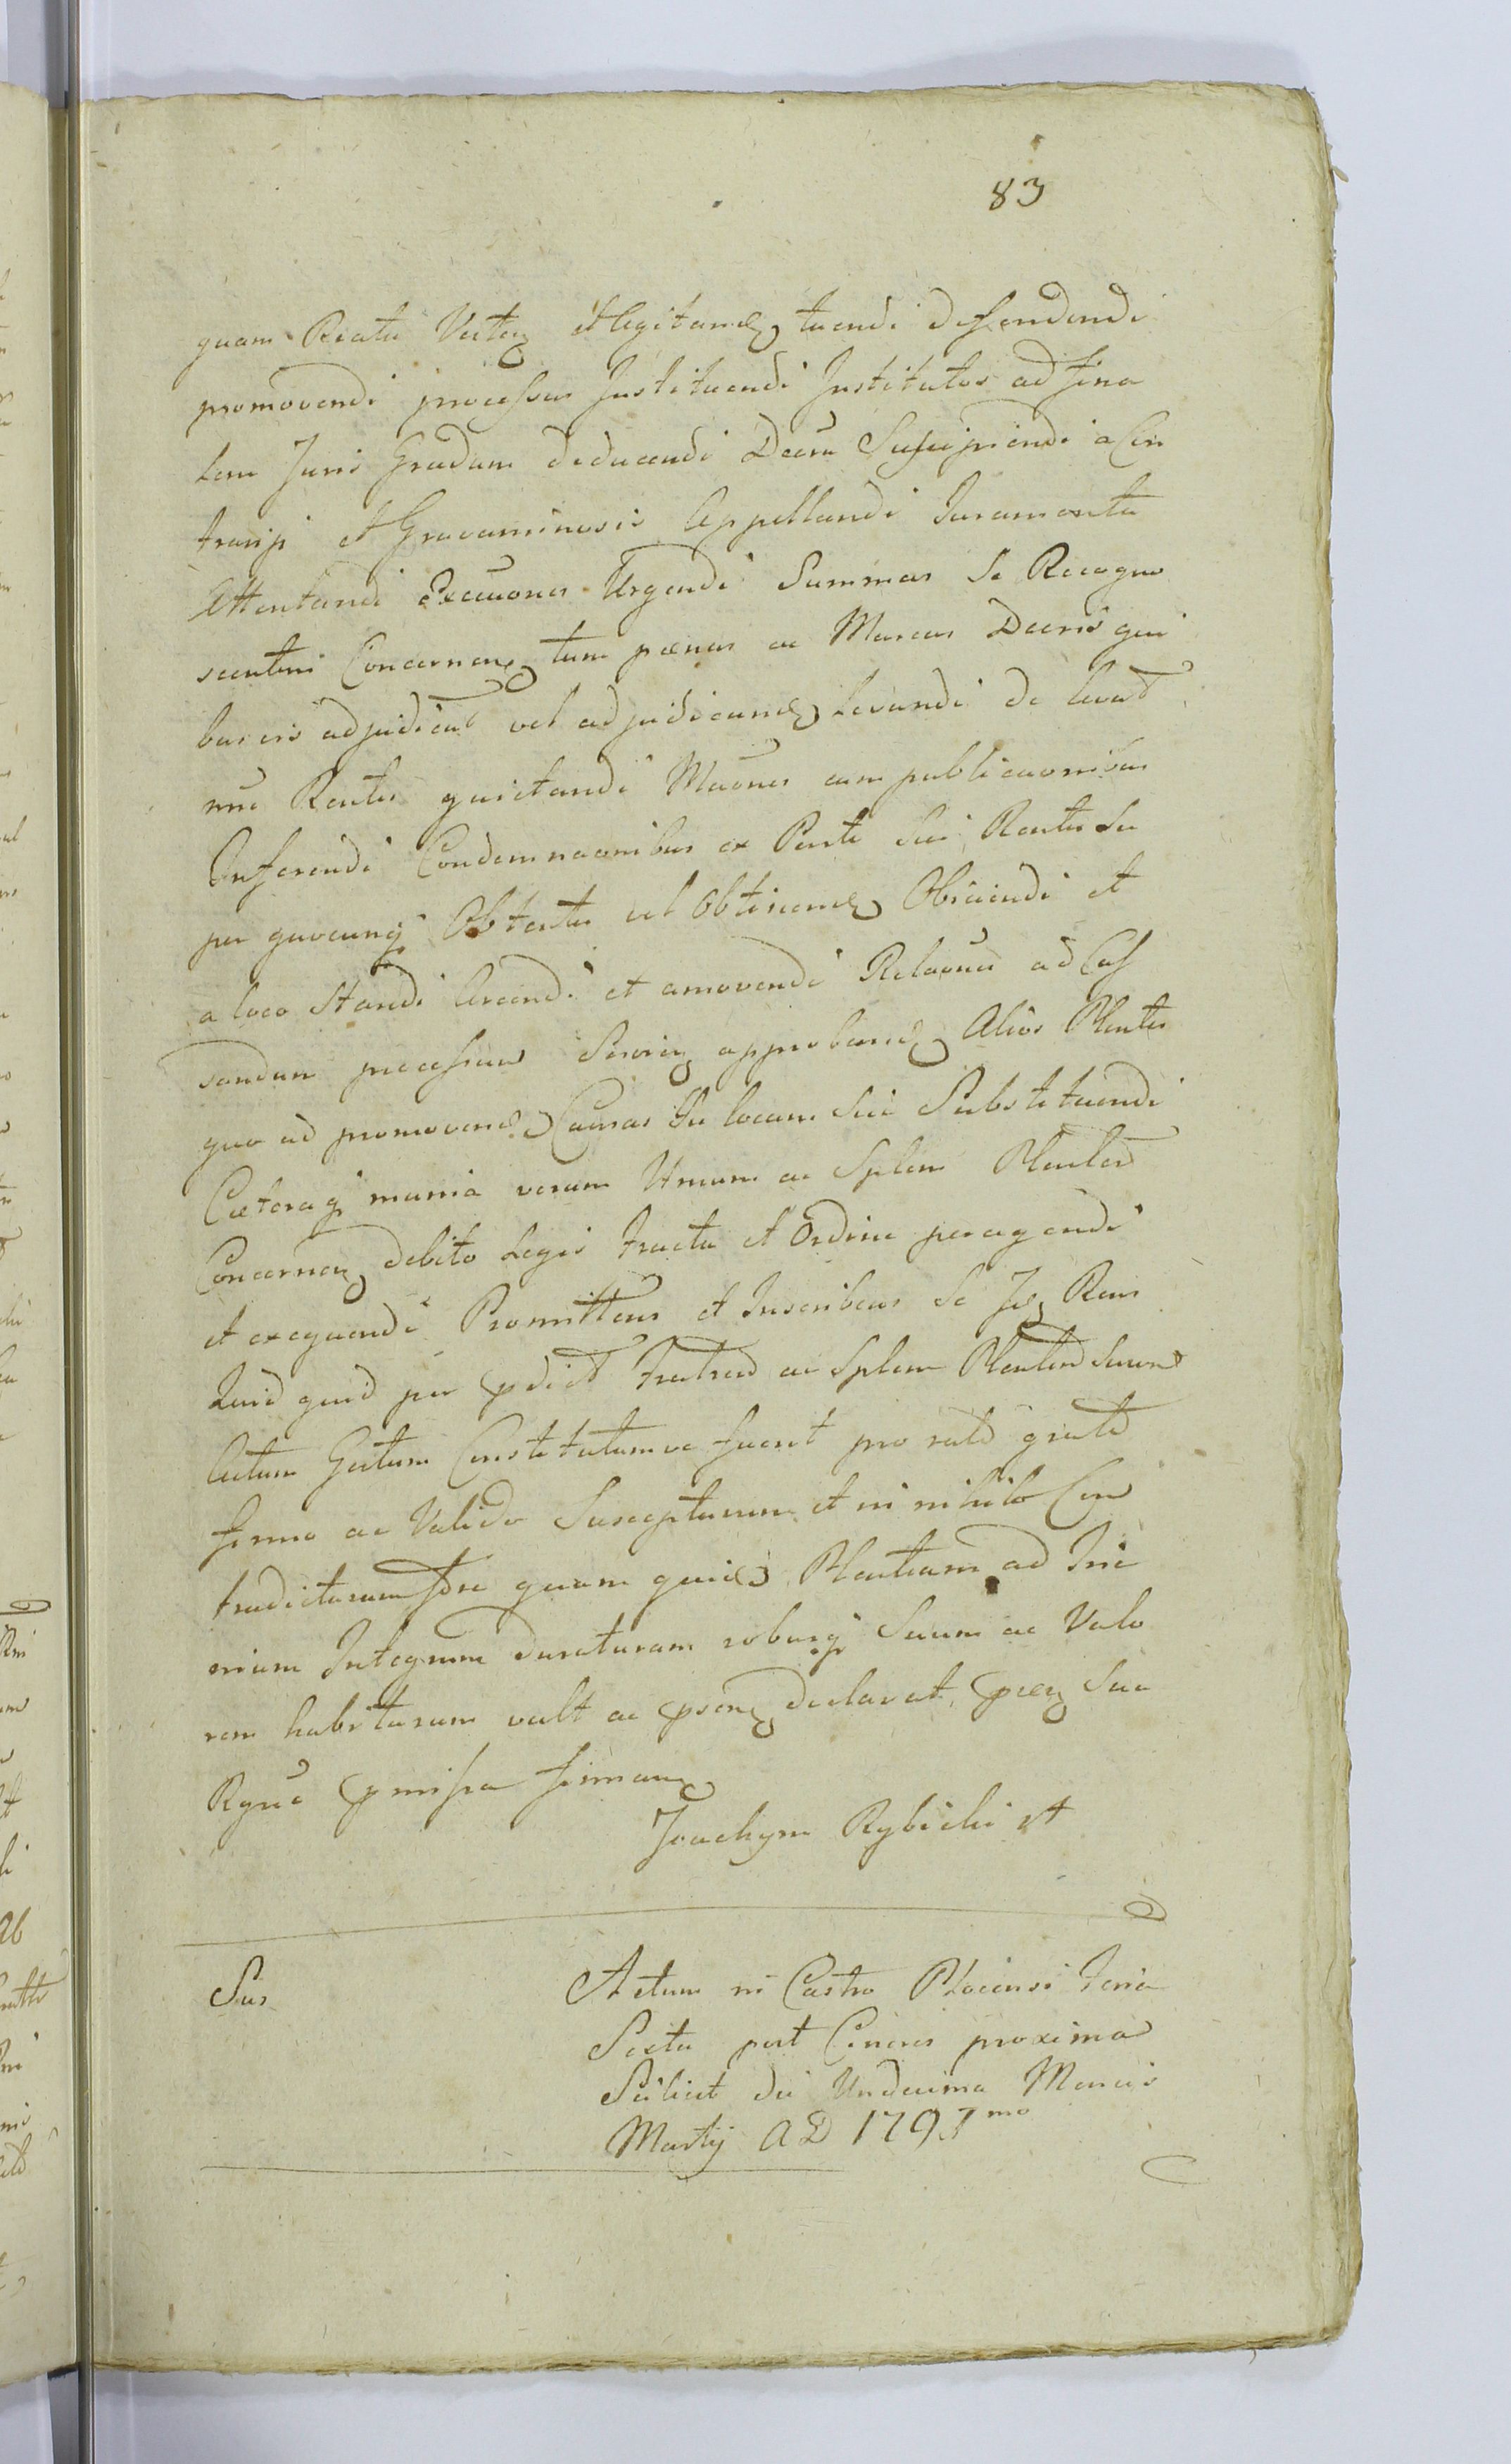 83
quam Reatu Verteñ et legitandi tuendi defendendi
promovendi processus Instituendi Institutos ad fina
lem Juris Gradum deducendi Decra Suscipiendi a Con
trarijs et Gravaminosis Appellandi Juramenta
Attentandi Execuones Urgendi Summas Se Recogno
scentem Concerneñ tum pænas ac Marcas Decris qui
bus vis adjudicat vel adjudicand levandi de levat
nne Rentes quietandi Maones cum publicaonibus
Inferendi Condemnaonibus ex Parte Sui Rentis Su
per quocunq Obtentis vel Obtinend Obviendi et
a loco Standi Arcendi et amovendi Relaones ad Cas
sandum processum Servieñ approband Alios Plentes
quo ad promovend Causas In locum Sui Substituendi
Cæteraq munia verum Unum ac Splem Plented
Concerneñ debito Legis tractu et Ordine peragendi
et exequendi Promittens et Inscribens Se Rens
Quid quid per pdict Fratred ac Splem Plented Suum
Actum Gestum Constitutumve fuerit pro rato grato
firmo ac Valido Suscepturum et in nihilo Con
tradicturum quam quid Plentiam ad
Integrum duraturam roburq Suum ac Valo
rem habituram vult ac pseñ declarat, Sua
Rgne pmissa firman
Joachym Rybicki
Sus
Actum in Castro Plocensi Feria
Sexta post Cineres proxima
Scilicet die Undecima Mensis
Martij A D 1791mo